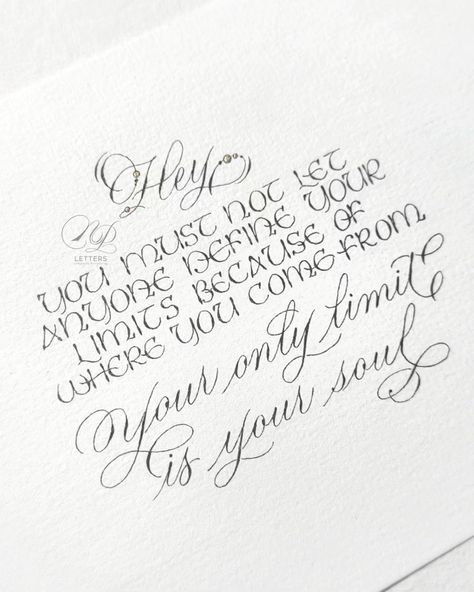 Hey
YOU MUST NOT LET
ANYONE DEFINE YOUR
LIMITS BECAUSE OF
WHERE YOU COME FROM
Your only limit
is your soul
NB
LETTERS